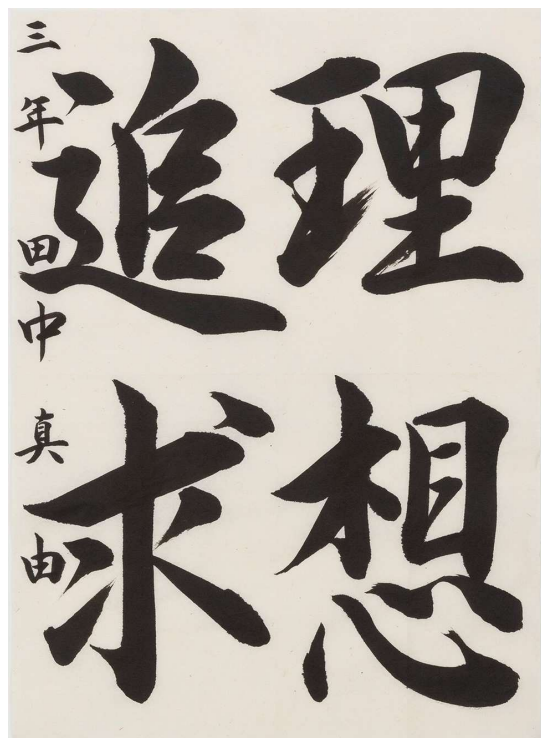 理想
追求
三年 田中 真由